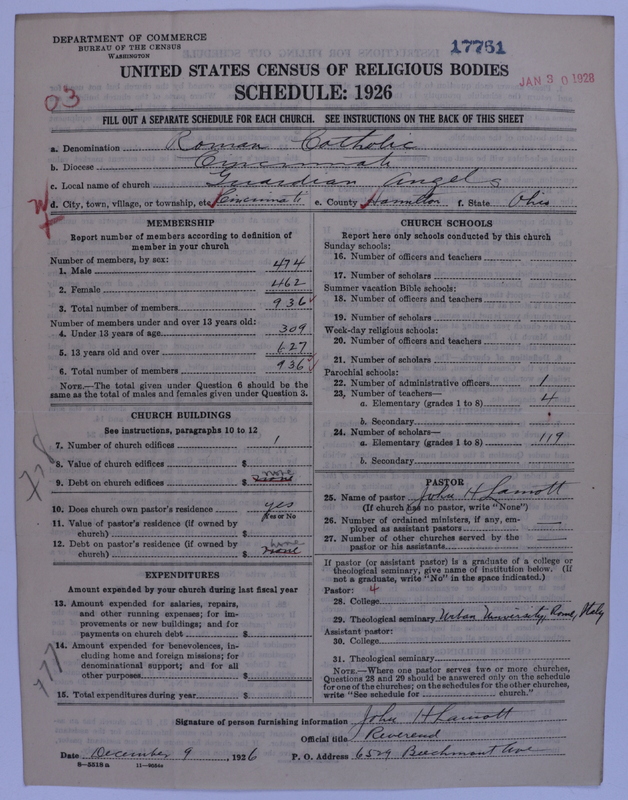 DEPARTMENT OF COMMERCE
BUREAU OF THE CENSUS
WASHINGTON
17761
JAN 30 1928
UNITED STATES CENSUS OF RELIGIOUS BODIES
SCHEDULE: 1926
03
FILL OUT A SEPARATE SCHEDULE FOR EACH CHURCH. SEE INSTRUCTIONS ON THE BACK OF THIS SHEET
a. Denomination Roman Catholic
b. Diocese Cincinnati
c. Local name of church Guardian Angels
d. City, town, village, or township, etc. Cincinnati e. County Hamilton f. State Ohio
MEMBERSHIP
Report number of members according to definition of
member in your church
Number of members, by sex:
1. Male 474
2. Female 462
3. Total number of members 936
Number of members under and over 13 years old:
4. Under 13 years of age 309
5. 13 years old and over 627
6. Total number of members 936
NOTE.—The total given under Question 6 should be
same as the total of males and females given under Question 3.
CHURCH BUILDINGS
See instructions, paragraphs 10 to 12
7. Number of church edifices 1
8. Value of church edifices $
9. Debt on church edifices $ none
10. Does church own pastor's residence yes
Yes or No
11. Value of pastor's residence (if owned by
church) $
12. Debt on pastor's residence (if owned by
church) $ none
EXPENDITURES
Amount expended by your church during last fiscal year
13. Amount expended for salaries, repairs,
and other running expenses; for im-
provements or new buildings; and for
payments on church debt $
14. Amount expended for benevolences, in-
cluding home and foreign missions; for
denominational support; and for all
other purposes $
15. Total expenditures during year $
CHURCH SCHOOLS
Report here only schools conducted by this church
Sunday schools:
16. Number of officers and teachers
17. Number of scholars
Summer vacation Bible schools:
18. Number of officers and teachers
19. Number of scholars
Week-day religious schools:
20. Number of officers and teachers
21. Number of scholars
Parochial schools:
22. Number of administrative officers 1
23. Number of teachers—
a. Elementary (grades 1 to 8) 4
b. Secondary
24. Number of scholars—
a. Elementary (grades 1 to 8) 119
b. Secondary
PASTOR
25. Name of pastor John H Lamott
(If church has no pastor, write "None")
26. Number of ordained ministers, if any, em-
ployed as assistant pastors
27. Number of other churches served by the
pastor or his assistants
If pastor (or assistant pastor) is a graduate of a college or
theological seminary, give name of institution below. (If
not a graduate, write "No" in the space indicated.)
Pastor: 4
28. College
29. Theological seminary Urban University, Rome, Italy
Assistant pastor:
30. College
31. Theological seminary
NOTE.—Where one pastor serves two or more churches,
Questions 28 and 29 should be answered only on the schedule
for one of the churches; on the schedules for the other churches,
write "See schedule for church."
Signature of person furnishing information John H Lamott
Official title Reverend
Date December 9, 1926 P. O. Address 6529 Beechmont Ave
8-5518a